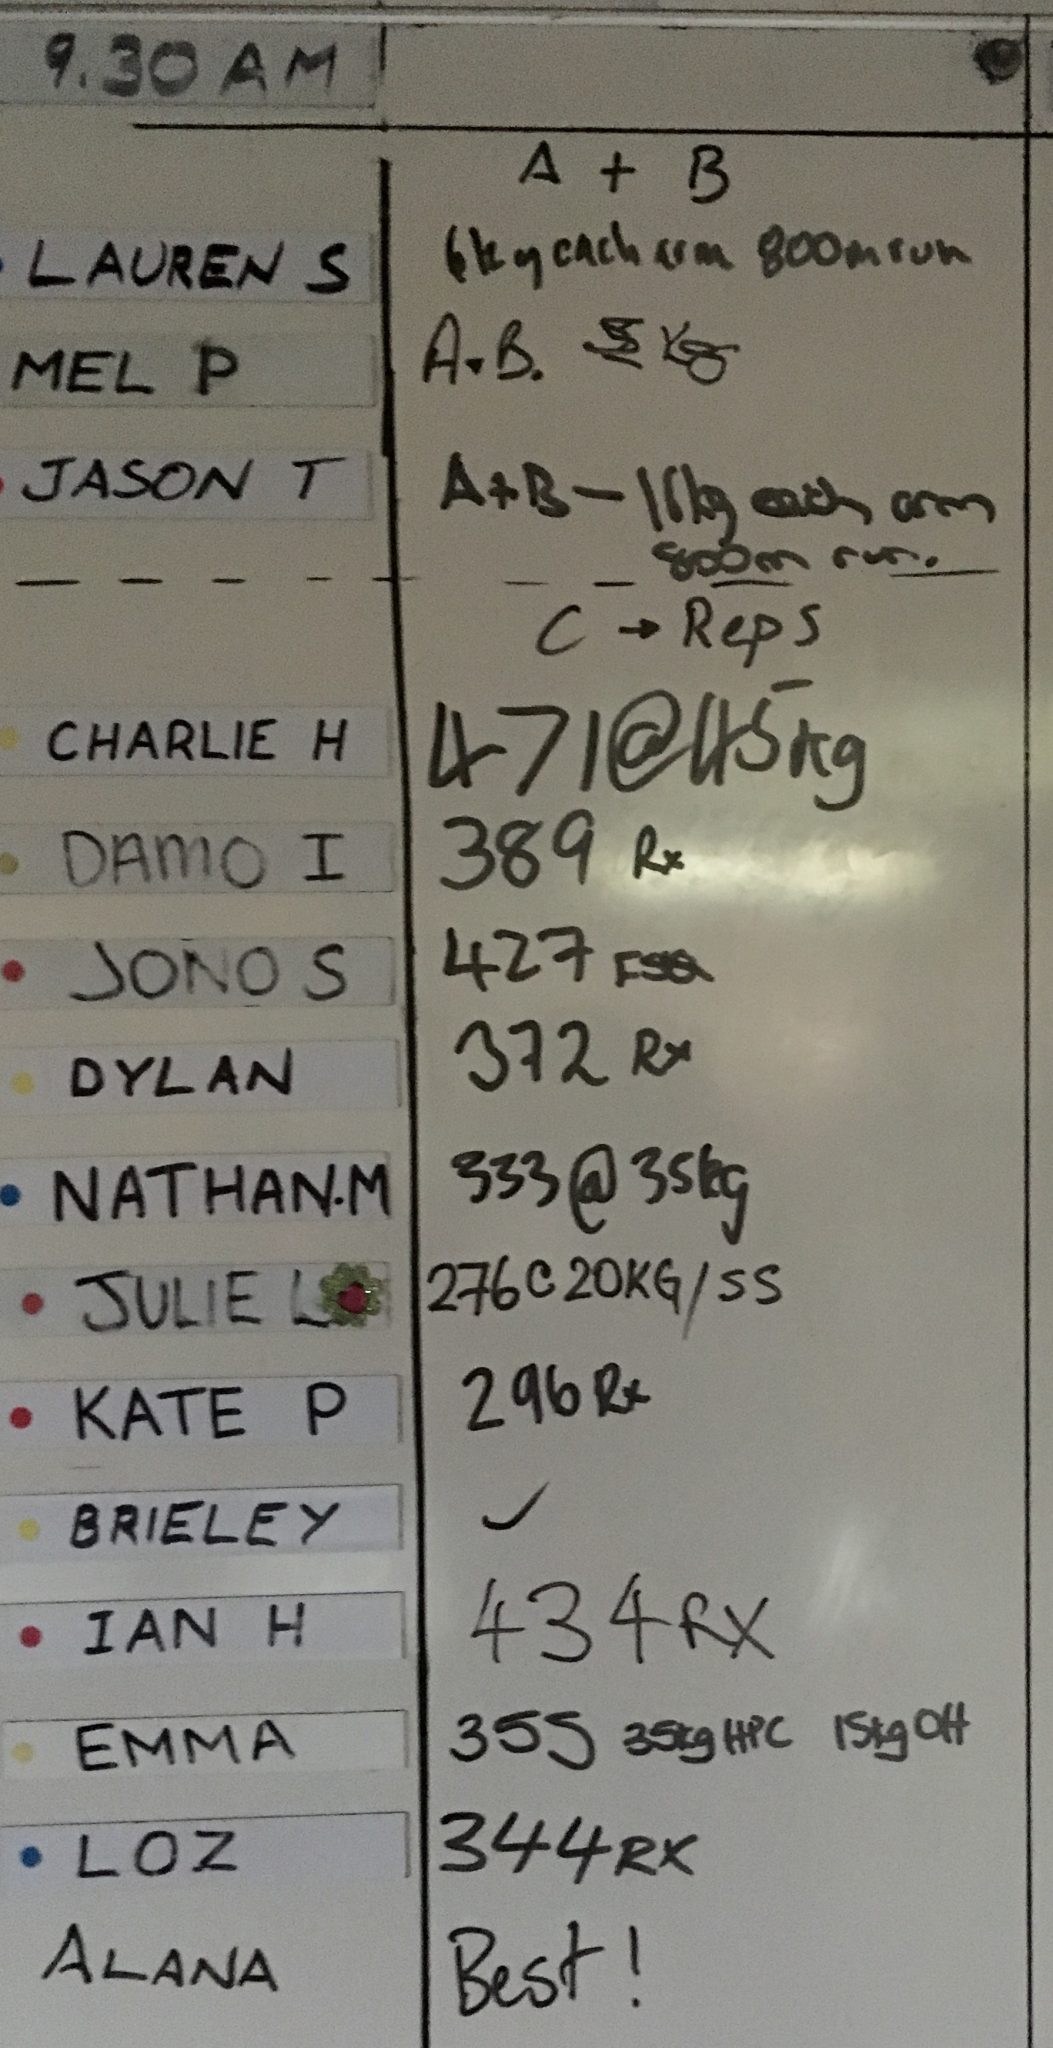 9.30 AM
A + B
LAUREN S 6kg each arm 800m run
MEL P A.B.
JASON T A+B - 16kg each arm
800m run.
C → Reps
CHARLIE H 471@45kg
DAMO I 389 Rx
JONO S 427
DYLAN 372 Rx
NATHAN.M 333@35kg
JULIE L 276C20KG/SS
KATE P 296 Rx
BRIELEY ✓
IAN H 434 RX
EMMA 355 35kg HPC 15kg OH
LOZ 344 RX
ALANA Best!